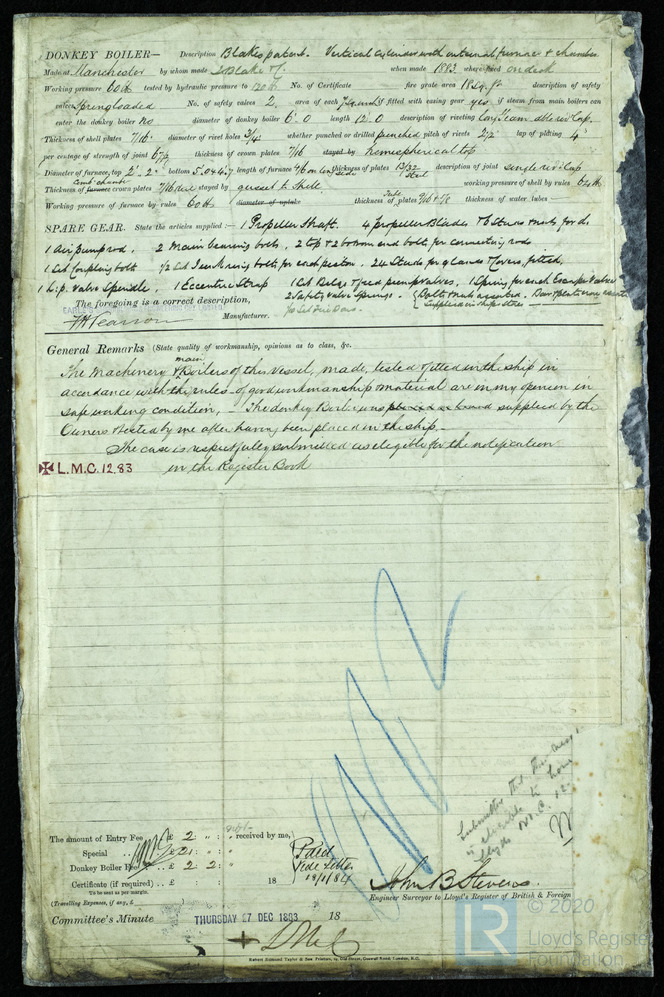 DONKEY BOILER— Description Blakes patent. Vertical Cylinder with internal furnace & chamber
Made at Manchester by whom made J Blake & when made 1883 where fixed on deck
Working pressure 60 lb tested by hydraulic pressure to 120 lb No. of Certificate fire grate area 18 sq. ft description of safety
valves Spring loaded No. of safety valves 2, area of each if fitted with easing gear yes if steam from main boilers can
enter the donkey boiler no diameter of donkey boiler 6'. 0 length 12. 0 description of riveting Lap seam dble riv Lap.
Thickness of shell plates 7/16 diameter of rivet holes 3/4 whether punched or drilled punched pitch of rivets 2 1/2 lap of plating 4"
per centage of strength of joint thickness of crown plates 7/16 stayed by hemispherical top
Diameter of furnace, top bottom 5.0 & 4.7 length of furnace thickness of plates 13/32 Steel description of joint single riv Lap
Thickness of furnace crown plates 7/16 stayed by gusset to shell working pressure of shell by rules
Working pressure of furnace by rules 60 lb diameter of uptake thickness of plates thickness of water tubes
SPARE GEAR. State the articles supplied:— 1 Propeller Shaft. 4 propeller Blades & 6 Studs & nuts for do.
1 air pump rod, 2 main bearing bolts, 2 top & 2 bottom end bolts for connecting rods
1 Set Coupling bolts 1/2 Set Junk ring bolts for each piston, 24 Studs for glands & covers, fitted,
1 L.p. Valve Spindle, 1 Eccentric Strap 1 Set Bilge & feed pump valves, 1 Spring for each Escape Valve
2 Safety Valve Springs. Bolts & nuts assorted. Bar & plate iron
supplied in ship Stores
The foregoing is a correct description,
Pearson Manufacturer. 1/2 Set Fire Bars.
General Remarks (State quality of workmanship, opinions as to class, &c.
The Machinery & main Boilers of this Vessel, made, tested & fitted in the ship in
accordance with the rules & of good workmanship & material are in my opinion in
safe working condition, — The donkey Boiler was supplied by the
Owners & tested by me after having been placed in the ship —
The case is respectfully submitted as eligible for the notification
✠ L.M.C. 12.83 in the Register Book
Submitted that this
is eligible to have
M.C. 12
The amount of Entry Fee .. £ 2 : : received by me,
Special .. .. £ : :
Donkey Boiler Fee .. £ 2 : 2 : Paid
Vide Letter
18/1/84
Certificate (if required) .. £ : : 18
To be sent as per margin.
(Travelling Expenses, if any, £
John B Stevens
Engineer Surveyor to Lloyd's Register of British & Foreign
Committee's Minute THURSDAY 27 DEC 1883 18
Robert Edmund Taylor & Son Printers, 19, Old Street, Goswell Road, London, E.C.
LR © 2020
Lloyd's Register
Foundation